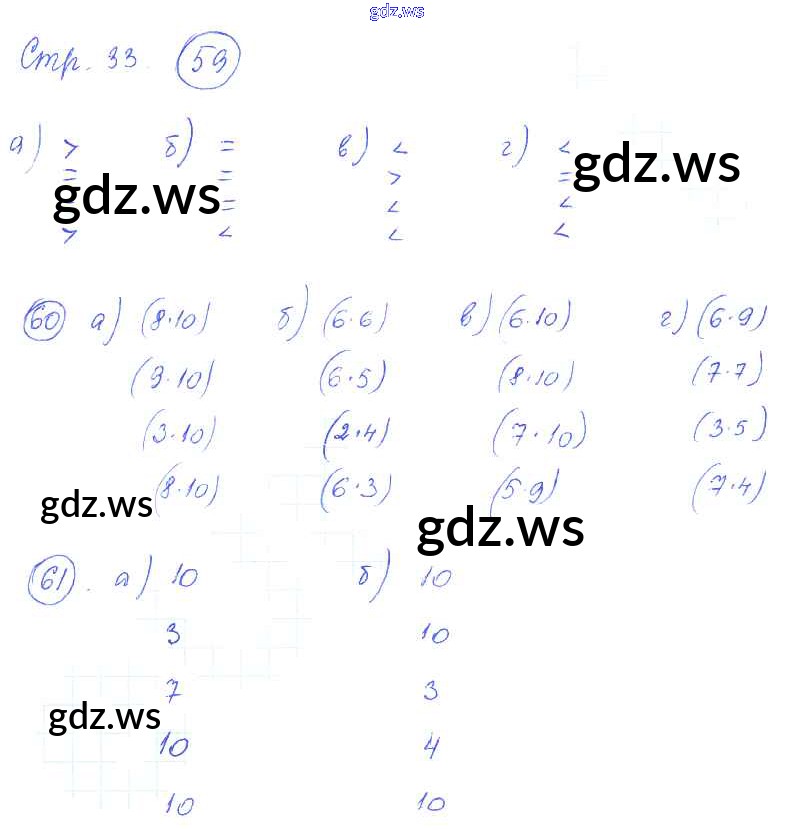 gdz.ws
Стр. 33. 59
а) > б) = в) < г) <
= = > =
gdz.ws = < < gdz.ws
> < < <
60 а) (8·10) б) (6·6) в) (6·10) г) (6·9)
(9·10) (6·5) (8·10) (7·7)
(3·10) (2·4) (7·10) (3·5)
(8·10) (6·3) (5·9) (7·4)
gdz.ws gdz.ws
61. а) 10 б) 10
3 10
7 3
gdz.ws
10 4
10 10